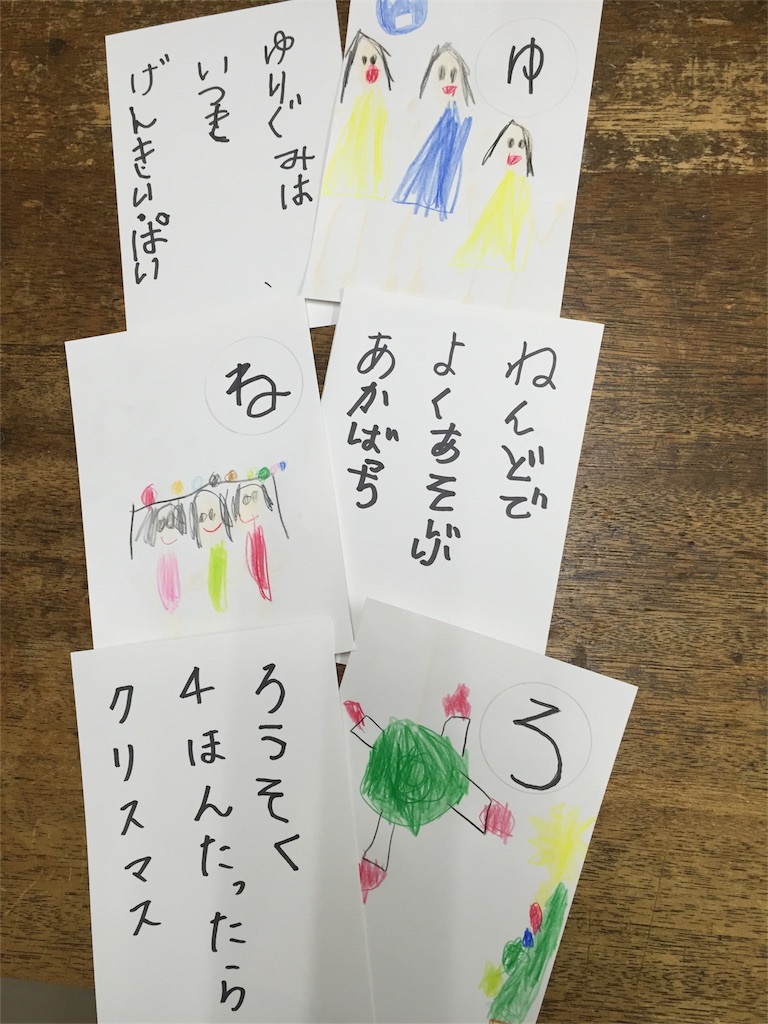 ゆ
ゆりぐみは
いつも
げんきいっぱい
ね
ねんどで
よくあそぶ
あかばっち
ろ
ろうそく
4ほんたったら
クリスマス